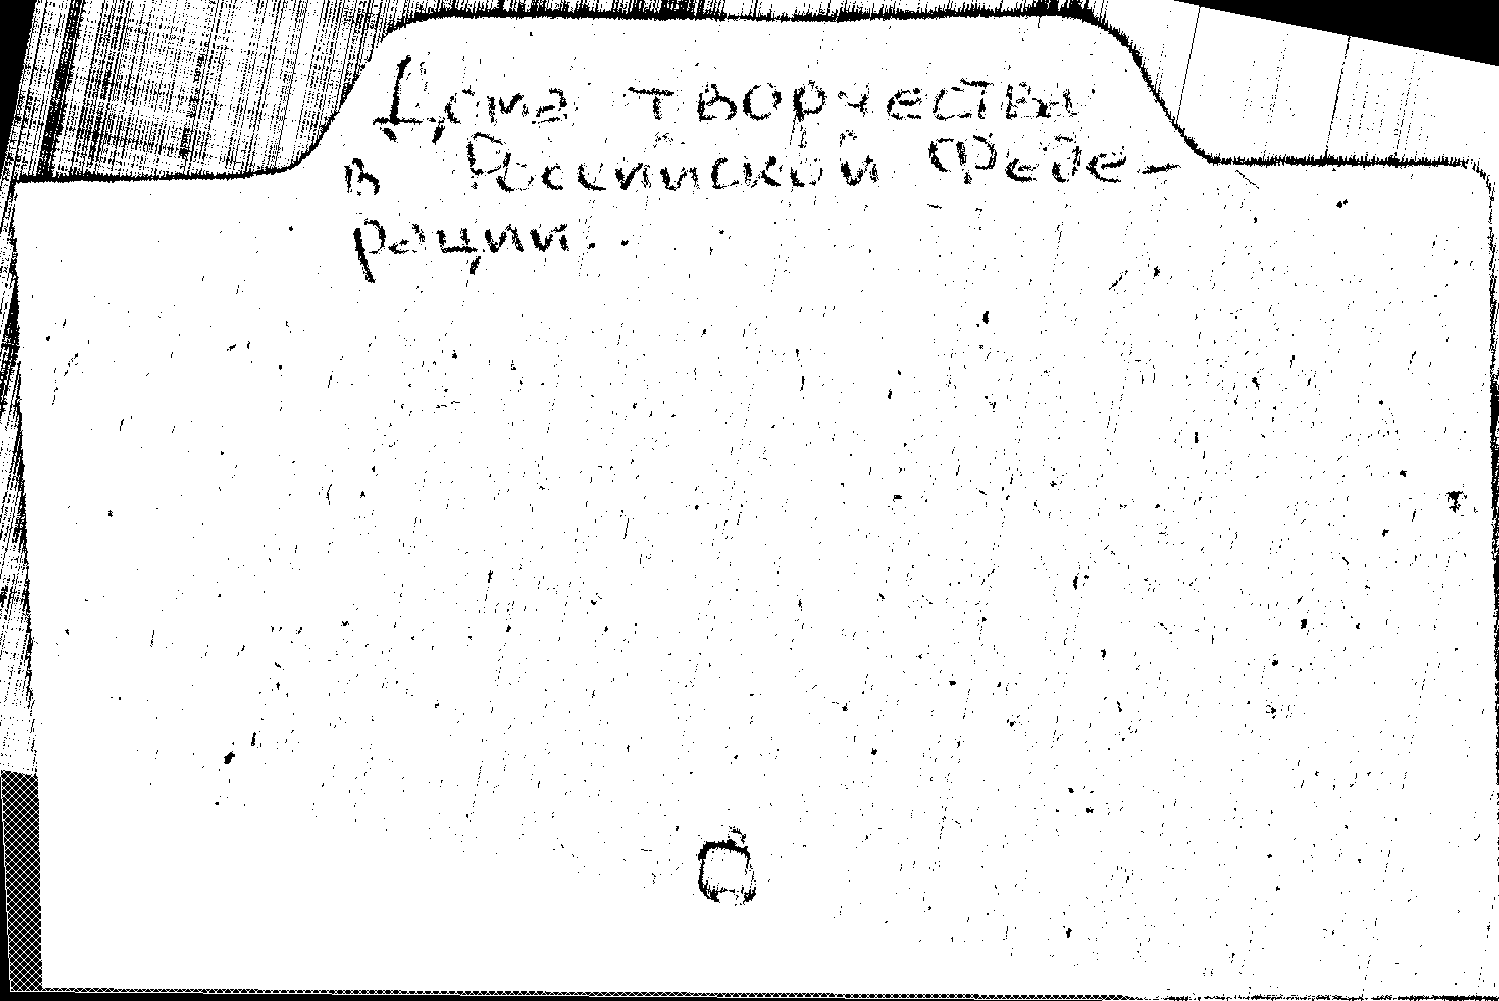 Дома творчества
в Российской Феде-
рации.